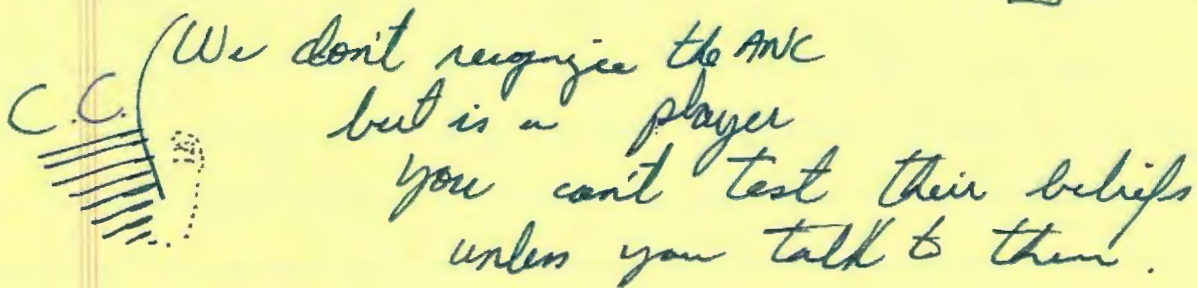 We don't recognize the ANC
C.C.
but is a player
you can't test their beliefs
unless you talk to them.